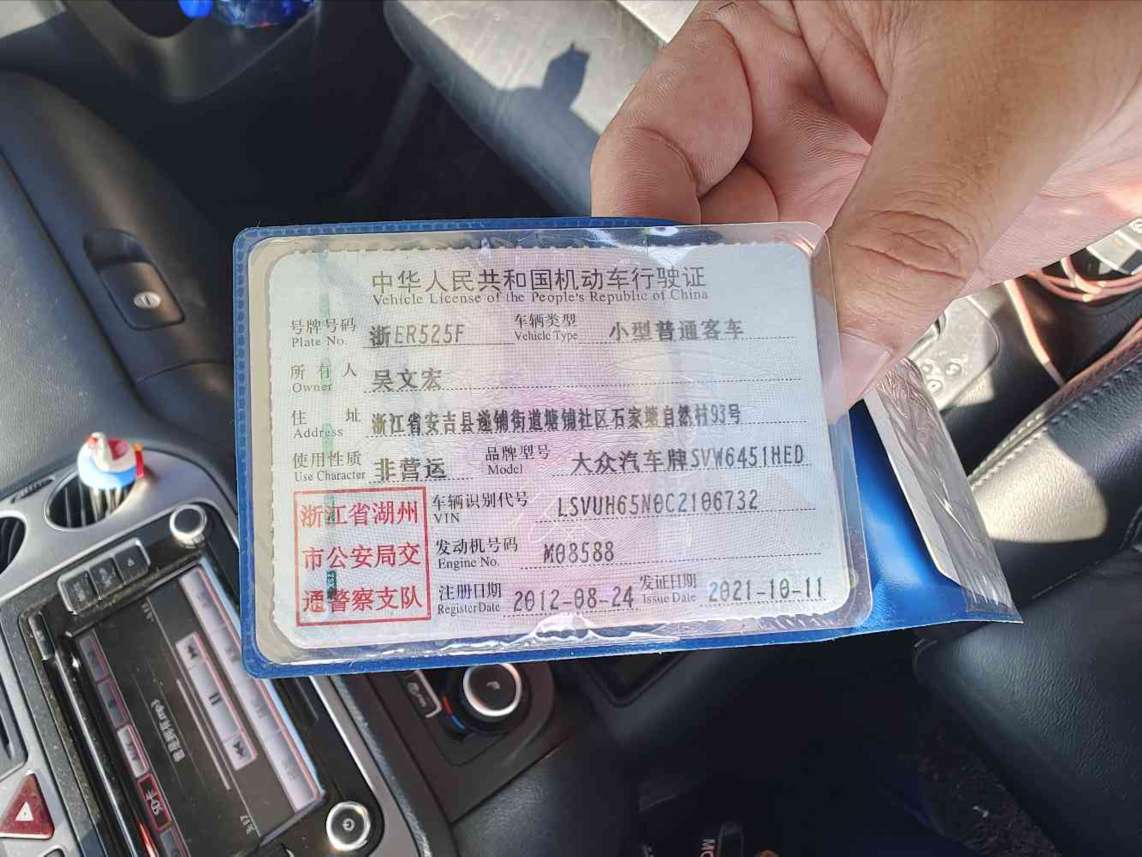 中华人民共和国机动车行驶证
Vehicle License of the People's Republic of China
号牌号码 浙ER525F 车辆类型 小型普通客车
Plate No. Vehicle Type
所有人 吴文宏
Owner
住址 浙江省安吉县递铺街道塘铺社区石家墩自然村93号
Address
使用性质 非营运 品牌型号 大众汽车牌SVW6451HED
Use Character Model
浙江省湖州
市公安局交
通警察支队
车辆识别代号 LSVUH65N0C2106732
VIN
发动机号码 M08588
Engine No.
注册日期 2012-08-24 发证日期 2021-10-11
Register Date Issue Date
SD卡
3:17